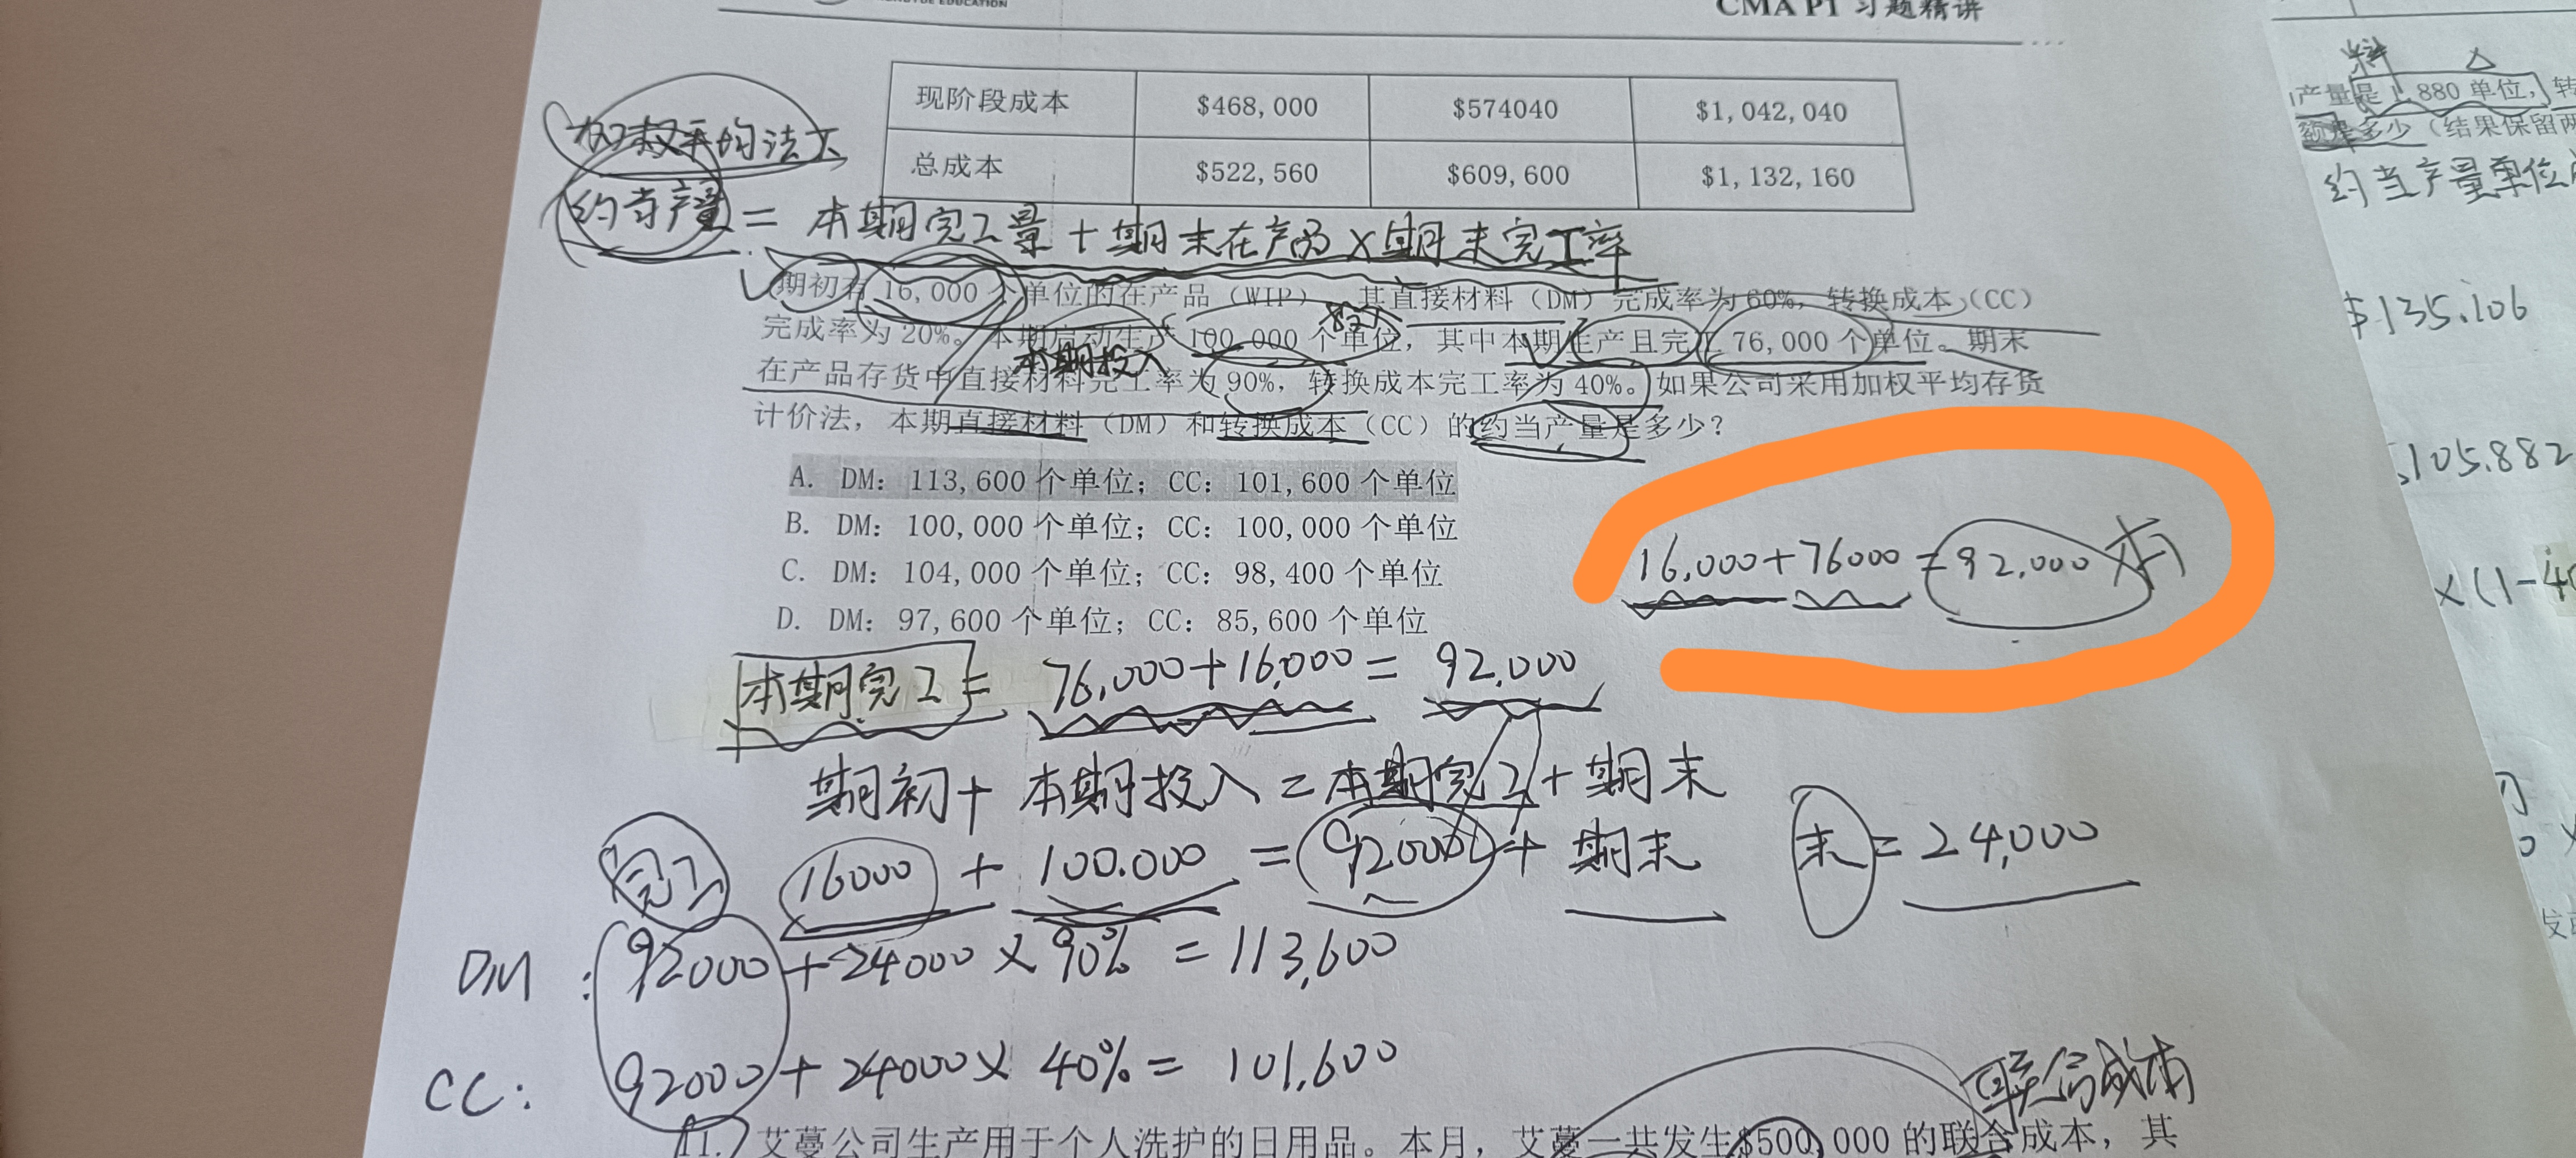 EDUCATION
CMA P1 习题精讲
现阶段成本 $468,000 $574040 $1,042,040
总成本 $522,560 $609,600 $1,132,160
加权平均法下
约当产量 = 本期完工量 + 期末在产品 × 期末完工率
期初有 16,000 个单位的在产品（WIP），其直接材料（DM）完成率为 60%，转换成本（CC）
完成率为 20%。本期启动生产 100,000 个单位，其中本期生产且完工 76,000 个单位。期末
本期投入
在产品存货中直接材料完工率为 90%，转换成本完工率为 40%。如果公司采用加权平均存货
计价法，本期直接材料（DM）和转换成本（CC）的约当产量是多少？
A. DM：113,600 个单位；CC：101,600 个单位
B. DM：100,000 个单位；CC：100,000 个单位
C. DM：104,000 个单位；CC：98,400 个单位
D. DM：97,600 个单位；CC：85,600 个单位
16,000+76000=92,000
本期完工= 76,000+16,000= 92,000
期初+ 本期投入 = 本期完工 + 期末
16000 + 100.000 = 92000 + 期末 末 = 24,000
完工
DM : 92000+24000×90% = 113,600
CC: 92000+24000× 40% = 101,600
联合成本
11. 艾蔓公司生产用于个人洗护的日用品。本月，艾蔓一共发生$500,000 的联合成本，其
料
产量是1,880 单位，转
额是多少（结果保留两
约当产量单位
$135.106
105.882
×(1-40